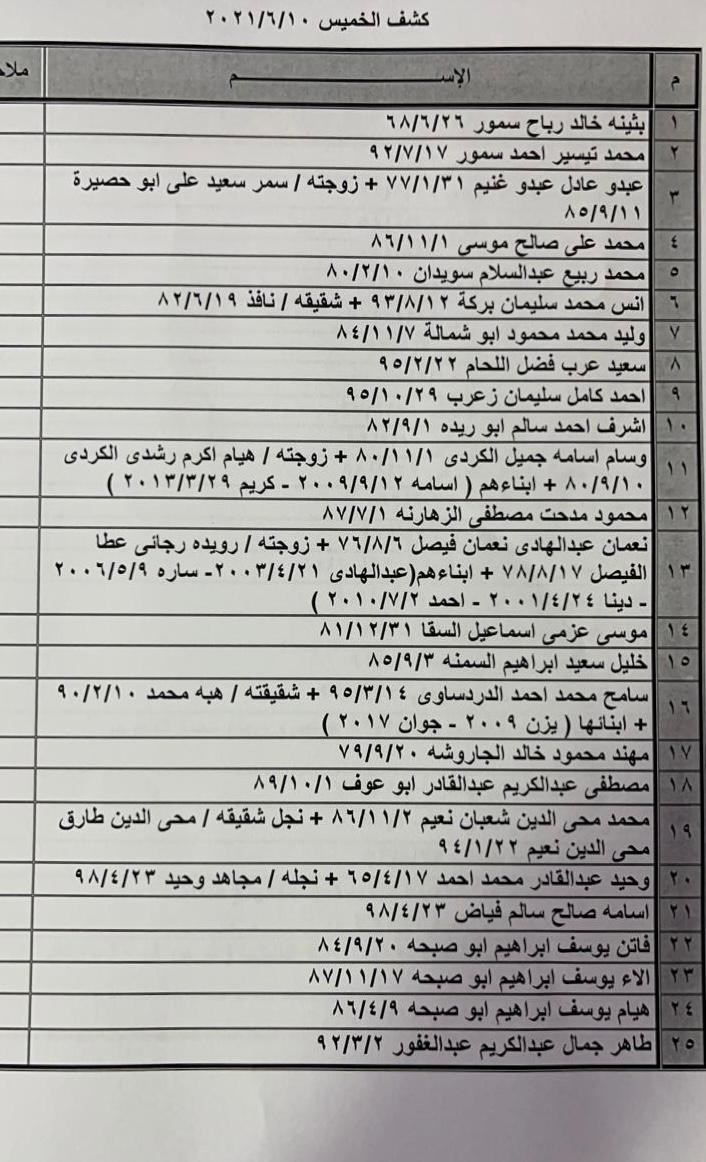 كشف الخميس ٢٠٢١/٦/١٠
م الإســـــــــم ملاح
١ بثينه خالد رباح سمور ٦٨/٦/٢٦
٢ محمد تيسير احمد سمور ٩٢/٧/١٧
٣ عبدو عادل عبدو غنيم ٧٧/١/٣١ + زوجته / سمر سعيد على ابو حصيرة
٨٥/٩/١١
٤ محمد على صالح موسى ٨٦/١١/١
٥ محمد ربيع عبدالسلام سويدان ٨٠/٢/١٠
٦ انس محمد سليمان بركة ٩٣/٨/١٢ + شقيقه / نافذ ٨٢/٦/١٩
٧ وليد محمد محمود ابو شمالة ٨٤/١١/٧
٨ سعيد عرب فضل اللحام ٩٥/٢/٢٢
٩ احمد كامل سليمان زعرب ٩٥/١٠/٢٩
١٠ اشرف احمد سالم ابو ريده ٨٢/٩/١
١١ وسام اسامه جميل الكردى ٨٠/١١/١ + زوجته / هيام اكرم رشدى الكردى
٨٠/٩/١٠ + ابناءهم ( اسامه ٢٠٠٩/٩/١٢ - كريم ٢٠١٣/٣/٢٩ )
١٢ محمود مدحت مصطفى الزهارنه ٨٧/٧/١
١٣ نعمان عبدالهادى نعمان فيصل ٧٦/٨/٦ + زوجته / رويده رجائى عطا
الفيصل ٧٨/٨/١٧ + ابناءهم(عبدالهادى ٢٠٠٣/٤/٢١- ساره ٢٠٠٦/٥/٩
- دينا ٢٠٠١/٤/٢٤ - احمد ٢٠١٠/٧/٢ )
١٤ موسى عزمى اسماعيل السقا ٨١/١٢/٣١
١٥ خليل سعيد ابراهيم السمنه ٨٥/٩/٣
١٦ سامح محمد احمد الدردساوى ٩٥/٣/١٤ + شقيقته / هبه محمد ٩٠/٢/١٠
+ ابنائها ( يزن ٢٠٠٩ - جوان ٢٠١٧ )
١٧ مهند محمود خالد الجاروشه ٧٩/٩/٢٠
١٨ مصطفى عبدالكريم عبدالقادر ابو عوف ٨٩/١٠/١
١٩ محمد محى الدين شعبان نعيم ٨٦/١١/٢ + نجل شقيقه / محى الدين طارق
محى الدين نعيم ٩٤/١/٢٢
٢٠ وحيد عبدالقادر محمد احمد ٦٥/٤/١٧ + نجله / مجاهد وحيد ٩٨/٤/٢٣
٢١ اسامه صالح سالم فياض ٩٨/٤/٢٣
٢٢ فاتن يوسف ابراهيم ابو صبحه ٨٤/٩/٢٠
٢٣ الاء يوسف ابراهيم ابو صبحه ٨٧/١١/١٧
٢٤ هيام يوسف ابراهيم ابو صبحه ٨٦/٤/٩
٢٥ طاهر جمال عبدالكريم عبدالغفور ٩٢/٣/٢